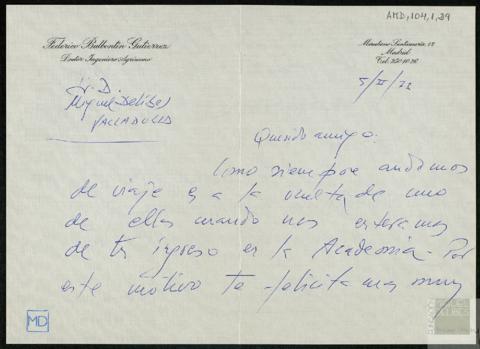 AMD,104,1,29
Federico Balbontín Gutiérrez
Doctor Ingeniero Agrónomo
Madrid
Sr. D.
Miguel Delibes
VALLADOLID
Querido amigo:
Como siempre andamos
de viaje es a la vuelta de uno
de ellos cuando nos enteramos
de tu ingreso en la Academia. Por
este motivo te felicitamos muy
MD